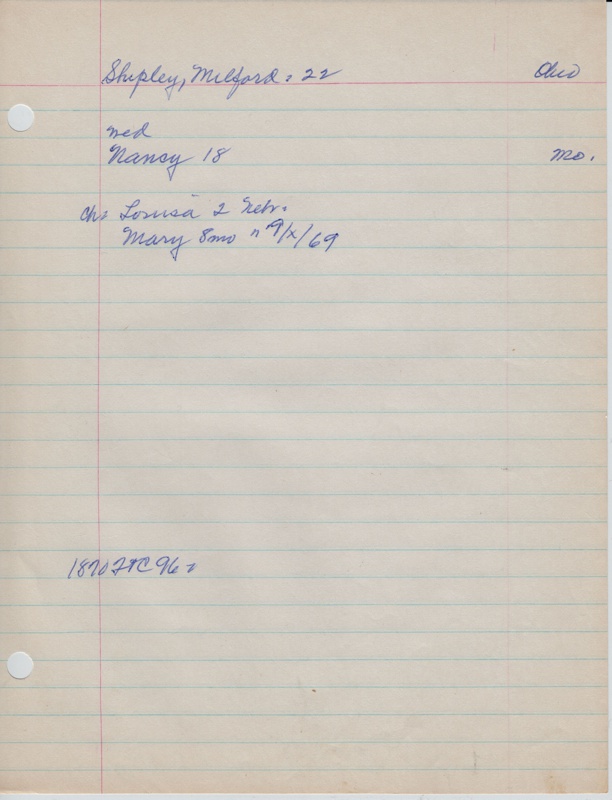 Shipley, Milford: 22 Ohio
wed
Nancy 18 Mo.
ch: Louisa 2 Nebr.
Mary 8mo " 9/x/69
1870 FTC 96: